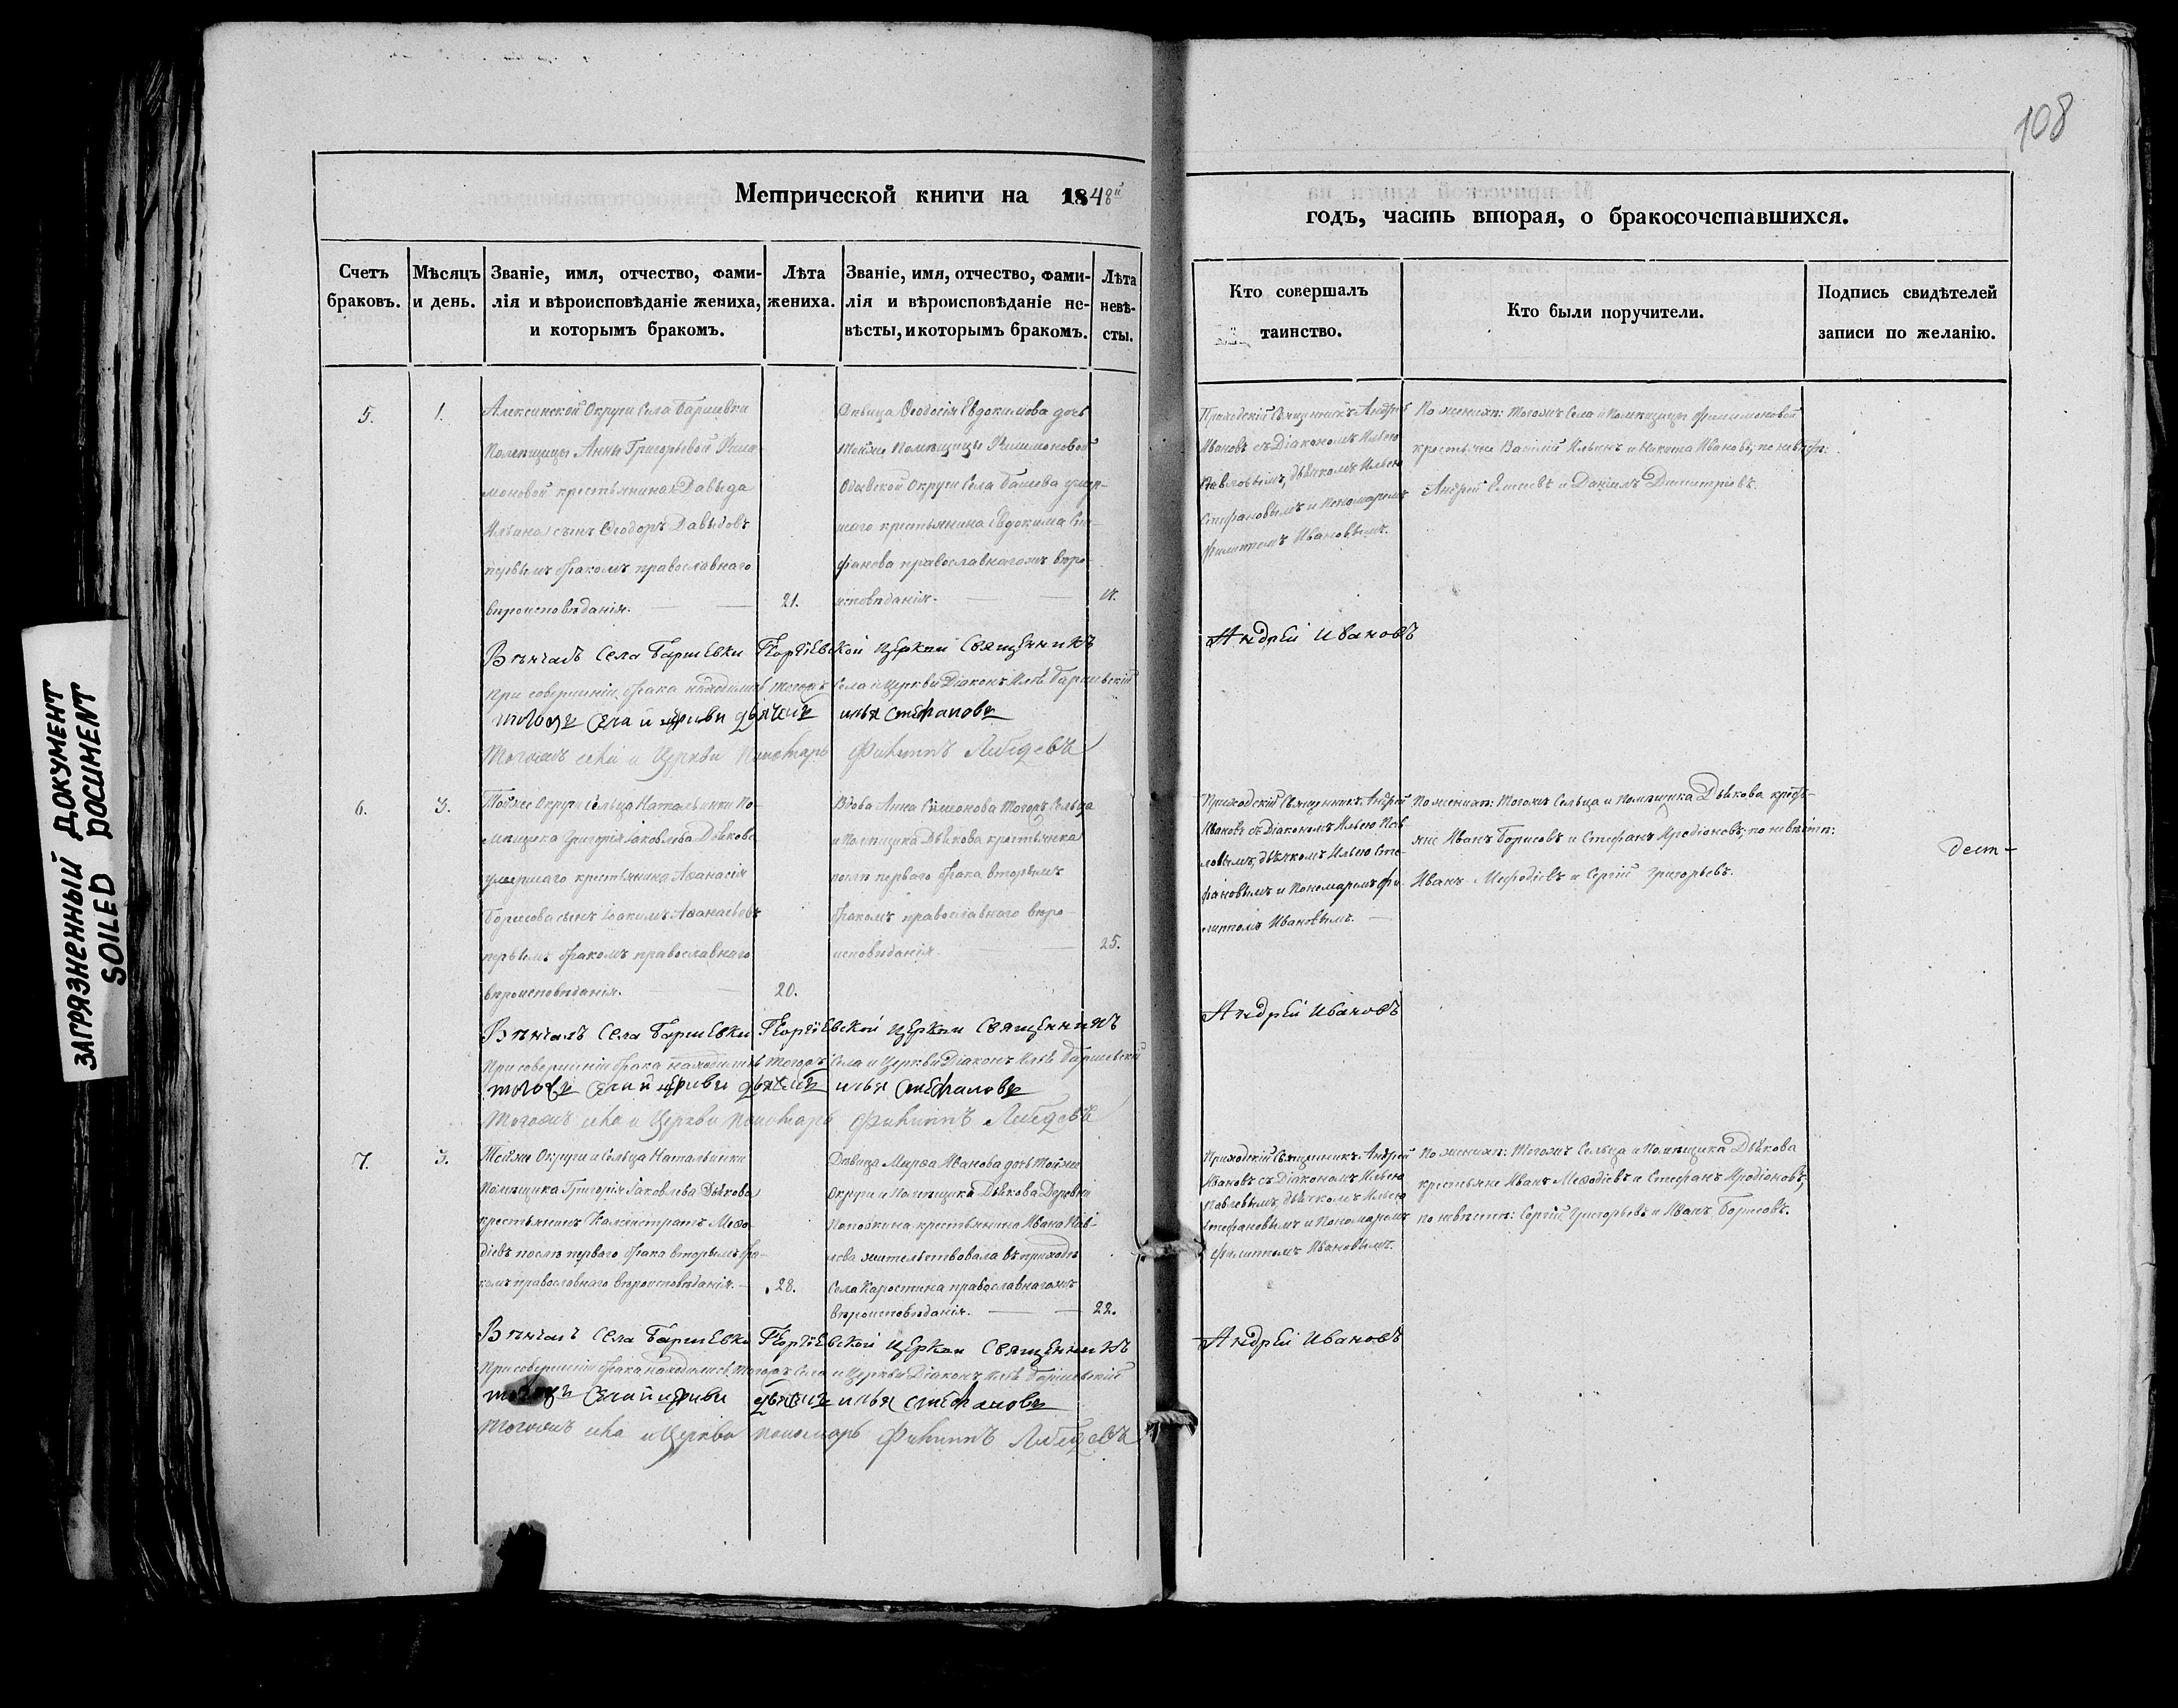 108
ЗАГРЯЗНЕННЫЙ ДОКУМЕНТ
SOILED DOCUMENT
Метрической книги на 1848й
годъ, часть вторая, о бракосочетавшихся.
Счетъ браковъ.
Мѣсяцъ и день.
Званіе, имя, отчество, фами-
лія и вѣроисповѣданіе жениха,
и которымъ бракомъ.
Лѣта
жениха.
Званіе, имя, отчество, фами-
лія и вѣроисповѣданіе не-
вѣсты, и которымъ бракомъ.
Лѣта
невѣ-
сты.
Кто совершалъ
таинство.
Кто были поручители.
Подпись свидѣтелей
записи по желанію.
5.
1.
Алексинской Округи Села Баршевки
Помѣщицы Анны Григорьевой Фили-
моновой крестьянина Давыда
Ильина сынъ Ѳеодоръ Давыдовъ
первымъ бракомъ православнаго
вѣроисповѣданія.
21.
Дѣвица Ѳеодосія Евдокимова дочь
тойже Помѣщицы Филимоновой
Одоевской Округи Села умер-
шаго крестьянина Евдокима Сте-
фанова православнагожъ вѣро-
исповѣданія.
Приходскій Священникъ Андрей
Ивановъ съ Діакономъ Ильею
Павловымъ, дьячкомъ Ильею
Стефановымъ и Пономаремъ
Филиппомъ Ивановымъ.
По женихѣ: тогожъ Села и Помѣщицы Филимоновой
крестьяне Василій Ильинъ и Никита Ивановъ; по невѣстѣ:
Андрей и Даніилъ Димитріевъ.
Вѣнчалъ Села Баршевки Георгіевской Церкви Священникъ
Андрей Ивановъ
при совершеніи брака находились тогожъ Села и Церкви Діаконъ Илья Баршевскій
тогожъ села и церкви дьячокъ илья Стефановъ
тогожъ села и Церкви Пономарь Филиппъ Лебедевъ
6.
3.
Тойже Округи Сельца Натальинки По-
мѣщика Григорія Іаковлева Дьякова
умершаго крестьянина Аѳанасія
Борисова сынъ Іоакимъ Аѳанасьевъ
первымъ бракомъ православнаго
вѣроисповѣданія.
20.
Вдова Анна Симонова тогожъ Сельца
и Помѣщика Дьякова крестьянка
послѣ перваго брака вторымъ
бракомъ православнаго вѣро-
исповѣданія.
25.
Приходскій Священникъ Андрей
Ивановъ съ Діакономъ Ильею Пав-
ловымъ, дьячкомъ Ильею Сте-
фановымъ и Пономаремъ Фи-
липпомъ Ивановымъ.
По женихѣ: тогожъ Сельца и Помѣщика Дьякова кресть-
яне Иванъ Борисовъ и Стефанъ Иродіоновъ; по невѣстѣ:
Иванъ Меѳодіевъ и Сергій Григорьевъ.
Вѣнчалъ Села Баршевки Георгіевской Церкви Священникъ
Андрей Ивановъ
При совершеніи брака находились тогожъ Села и Церкви Діаконъ Илья Баршевскій
тогожъ села и церкви дьячокъ илья Стефановъ
тогожъ села и Церкви Пономарь Филиппъ Лебедевъ
7.
3.
Тойже Округи и Сельца Натальинки
Помѣщика Григорія Іаковлева Дьякова
крестьянинъ Каллистратъ Меѳо-
діевъ послѣ перваго брака вторымъ бра-
комъ православнаго вѣроисповѣданія.
28.
Дѣвица Марѳа Иванова дочь тойже
Округи и Помѣщика Дьякова Деревни
крестьянина Ивана Пав-
лова жительствовала въ приходѣ
Села Коростина православнагожъ
вѣроисповѣданія.
22.
Приходскій Священникъ Андрей
Ивановъ съ Діакономъ Ильею
Павловымъ, дьячкомъ Ильею
Стефановымъ и Пономаремъ
Филиппомъ Ивановымъ.
По женихѣ: тогожъ Сельца и Помѣщика Дьякова
крестьяне Иванъ Меѳодіевъ и Стефанъ Иродіоновъ;
по невѣстѣ: Сергій Григорьевъ и Иванъ Борисовъ.
Вѣнчалъ Села Баршевки Георгіевской Церкви Священникъ
Андрей Ивановъ
При совершеніи брака находились тогожъ Села и Церкви Діаконъ Илья Баршевскій
тогожъ села и церкви дьячокъ илья Стефановъ
тогожъ села и Церкви Пономарь Филиппъ Лебедевъ